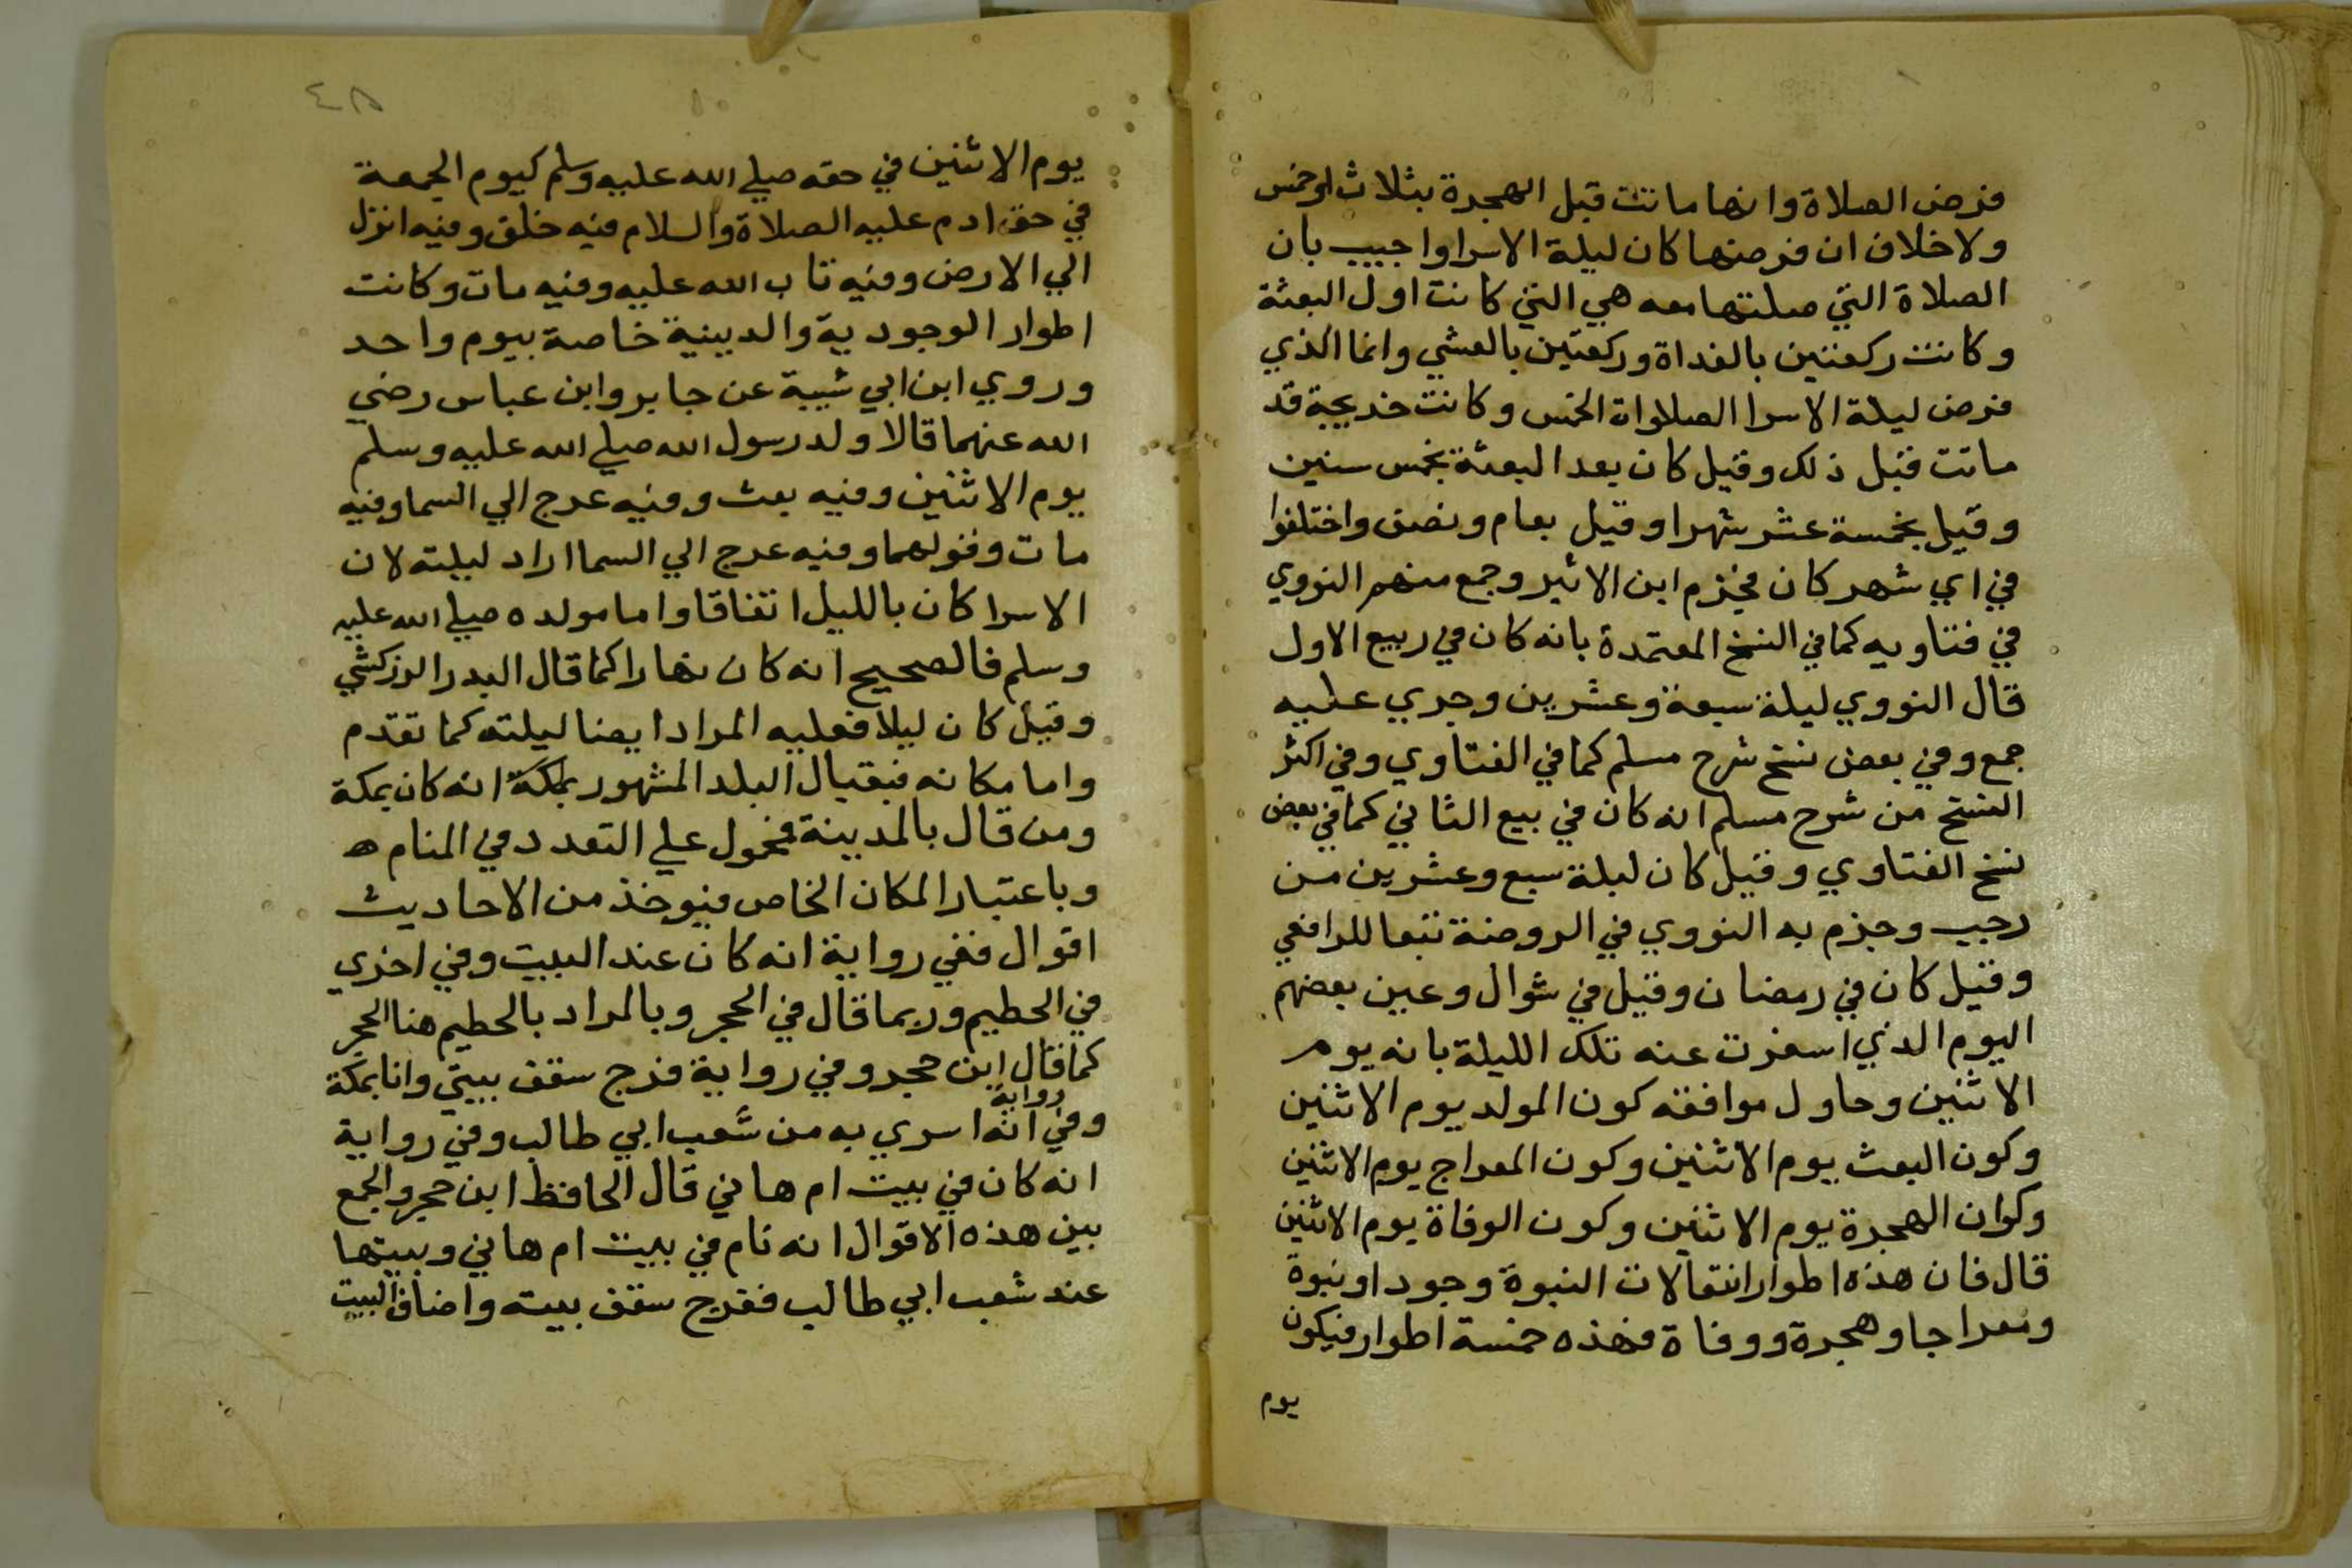 فرض الصلاة وانها ماتت قبل الهجرة بثلاث او خمس
ولا خلاف ان فرضها كان ليلة الاسرا واجيب بان
الصلاة التي صلتها معه هي التي كانت اول البعثة
وكانت ركعتين بالغداة وركعتين بالعشي وانما الذي
فرض ليلة الاسرا الصلوات الخمس وكانت خديجة قد
ماتت قبل ذلك وقيل كان بعد البعثة بخمس سنين
وقيل بخمسة عشر شهرا وقيل بعام ونصف واختلفوا
في اي شهر كان فجزم ابن الاثير وجمع منهم النووي
في فتاويه كما في النسخ المعتمدة بانه كان في ربيع الاول
قال النووي ليلة سبعة وعشرين وجري عليه
جمع وفي بعض نسخ شرح مسلم كما في الفتاوي وفي اكثر
النسخ من شرح مسلم انه كان في بيع الثاني كما في بعض
نسخ الفتاوي وقيل كان ليلة سبع وعشرين من
رجب وجزم به النووي في الروضة تبعا للرافعي
وقيل كان في رمضان وقيل في شوال وعين بعضهم
اليوم الذي اسفرت عنه تلك الليلة بانه يوم
الاثنين وحاول موافقة كون المولد يوم الاثنين
وكون البعث يوم الاثنين وكون المعراج يوم الاثنين
وكوان الهجرة يوم الاثنين وكون الوفاة يوم الاثنين
قال فان هذه اطوار انتقالات النبوة وجودا ونبوة
ومعراجا وهجرة ووفاة فهذه خمسة اطوار فيكون
يوم
٤٨
يوم الاثنين في حقه صلي الله عليه وسلم كيوم الجمعة
في حق ادم عليه الصلاة والسلام فيه خلق وفيه انزل
الي الارض وفيه تاب الله عليه وفيه مات وكانت
اطوار الوجودية والدينية خاصة بيوم واحد
وروي ابن ابي شيبة عن جابر وابن عباس رضي
الله عنهما قالا ولد رسول الله صلي الله عليه وسلم
يوم الاثنين وفيه بعث وفيه عرج الي السما وفيه
مات وقولهما وفيه عرج الي السما اراد ليلته لان
الاسرا كان بالليل اتفاقا واما مولده صلي الله عليه
وسلم فالصحيح انه كان نهارا كما قال البدر الزركشي
وقيل كان ليلا فعليه المراد ايضا ليلته كما تقدم
واما مكانه فيقال البلد المشهور بمكة انه كان بمكة
ومن قال بالمدينة فمحمول علي التعدد في المنام ه
وباعتبار المكان الخاص فيوخذ من الاحاديث
اقوال ففي رواية انه كان عند البيت وفي اخري
في الحطيم وربما قال في الحجر وبالمراد بالحطيم هنا الحجر
كما قال ابن حجر وفي رواية فرج سقف بيتي وانا بمكة
وفي رواية انه اسري به من شعب ابي طالب وفي رواية
انه كان في بيت ام هاني قال الحافظ ابن حجر والجمع
بين هذه الاقوال انه نام في بيت ام هاني وبيتها
عند شعب ابي طالب ففرج سقف بيته واضاف البيت